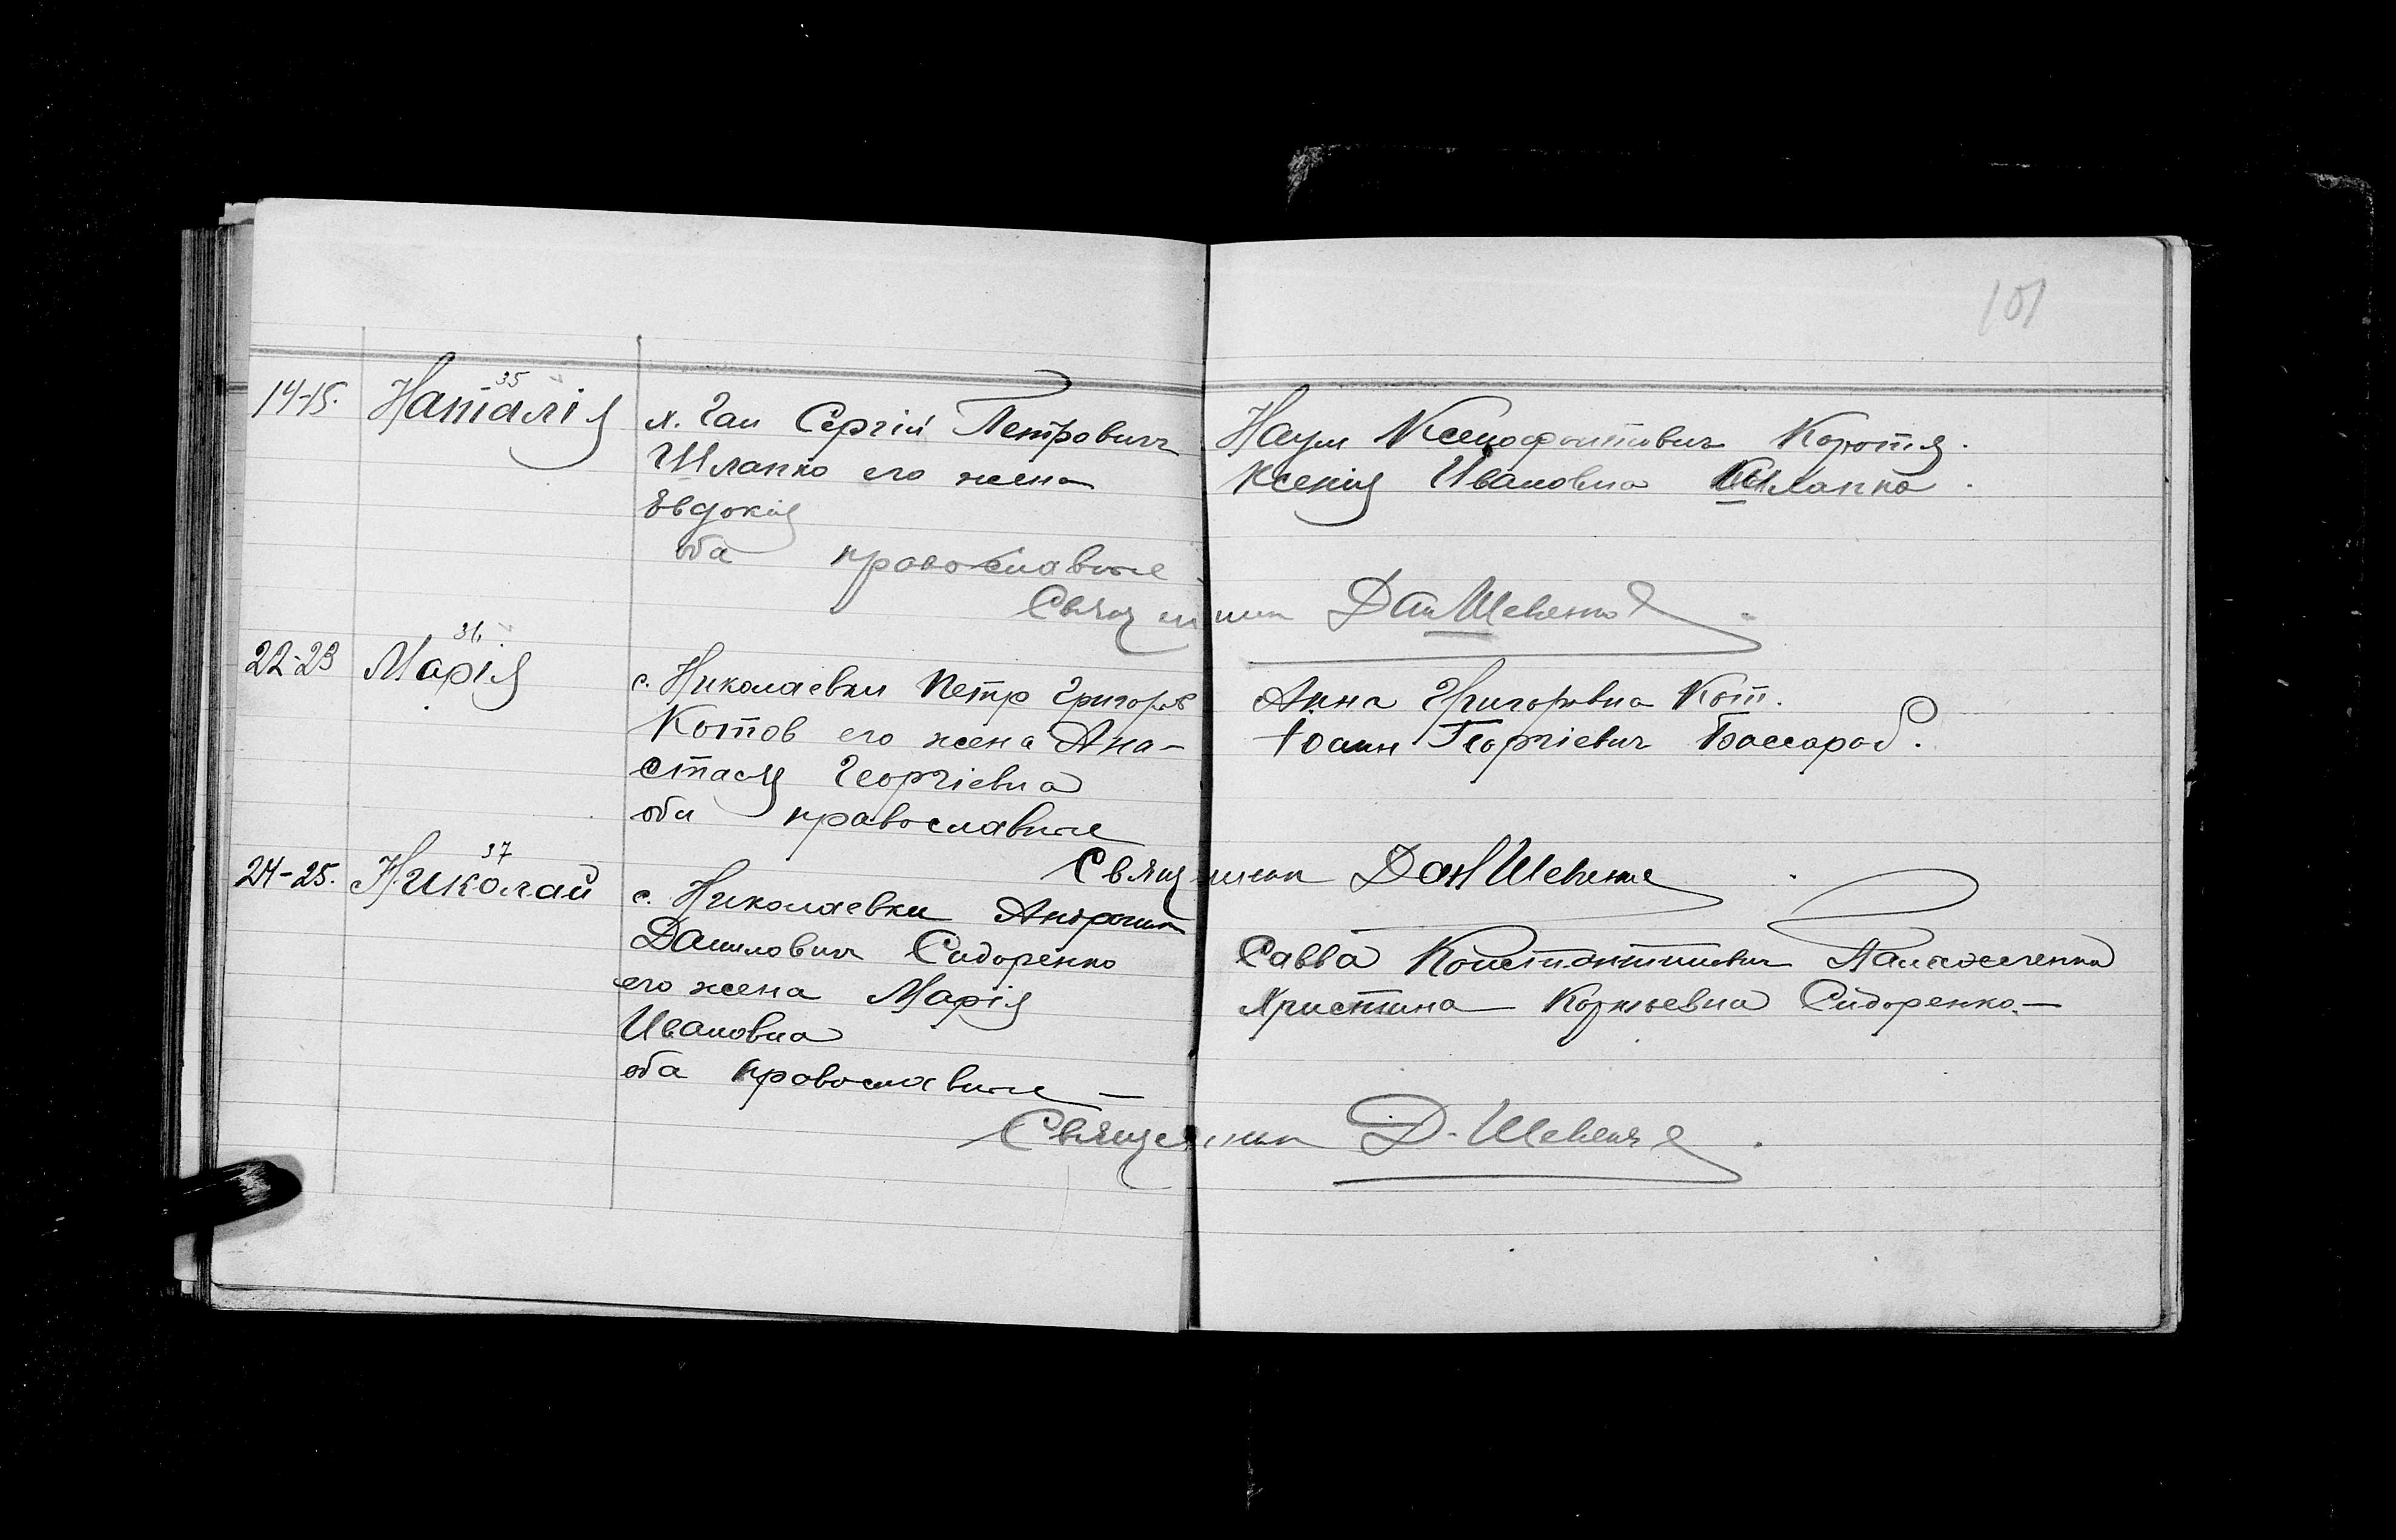 101
14-15.
35
Наталія
х. Ган Сергій Петрович
Шлапко его жена
Евдокія
оба православные
Наум Ксенофонтович Коротя.
Ксенія Ивановна Шлапко.
Священник Дан Шевченко
22-23
36
Марія
с. Николаевки Петр Григоров
Котов его жена Ана-
стасія Георгіевна
оба православные
Анна Григоровна Кот.
Іоанн Георгіевич Бассараб.
Священник Дан Шевченко
24-25.
37
Николай
с. Николаевки Андроник
Данилович Сидоренко
его жена Марія
Ивановна
оба православные —
Савва Константинович
Христина Корнѣевна Сидоренко. —
Священник Д. Шевченко